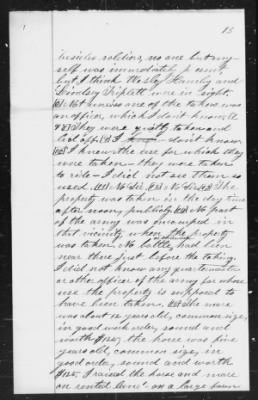 15
besides soldiers, no one but my-
self was immediately present,
but I think Wesley Hamly and
Lindsey Triplett were in sight.
Not unless one of the takers was
an officer, which I don't know,
They were quietly taken and
led off. don't know.
I know the use for which they
were taken – they were taken
to ride – I did not see them so
used. No sir. No sir. The
property was taken in the day time
after noon, publicly. No part
of the army was encamped in
that vicinity when the property
was taken. No battle had been
near there just before the taking.
I did not know any quartermaster
or other officer of the army for whose
use the property is supposed to
have been taken. The mare
was about 12 years old, common size,
in good work order, sound and
worth $125, the horse was five
years old, common size, in
good order, sound and worth
$125, I raised the horse and mare
on rented land, on a large farm